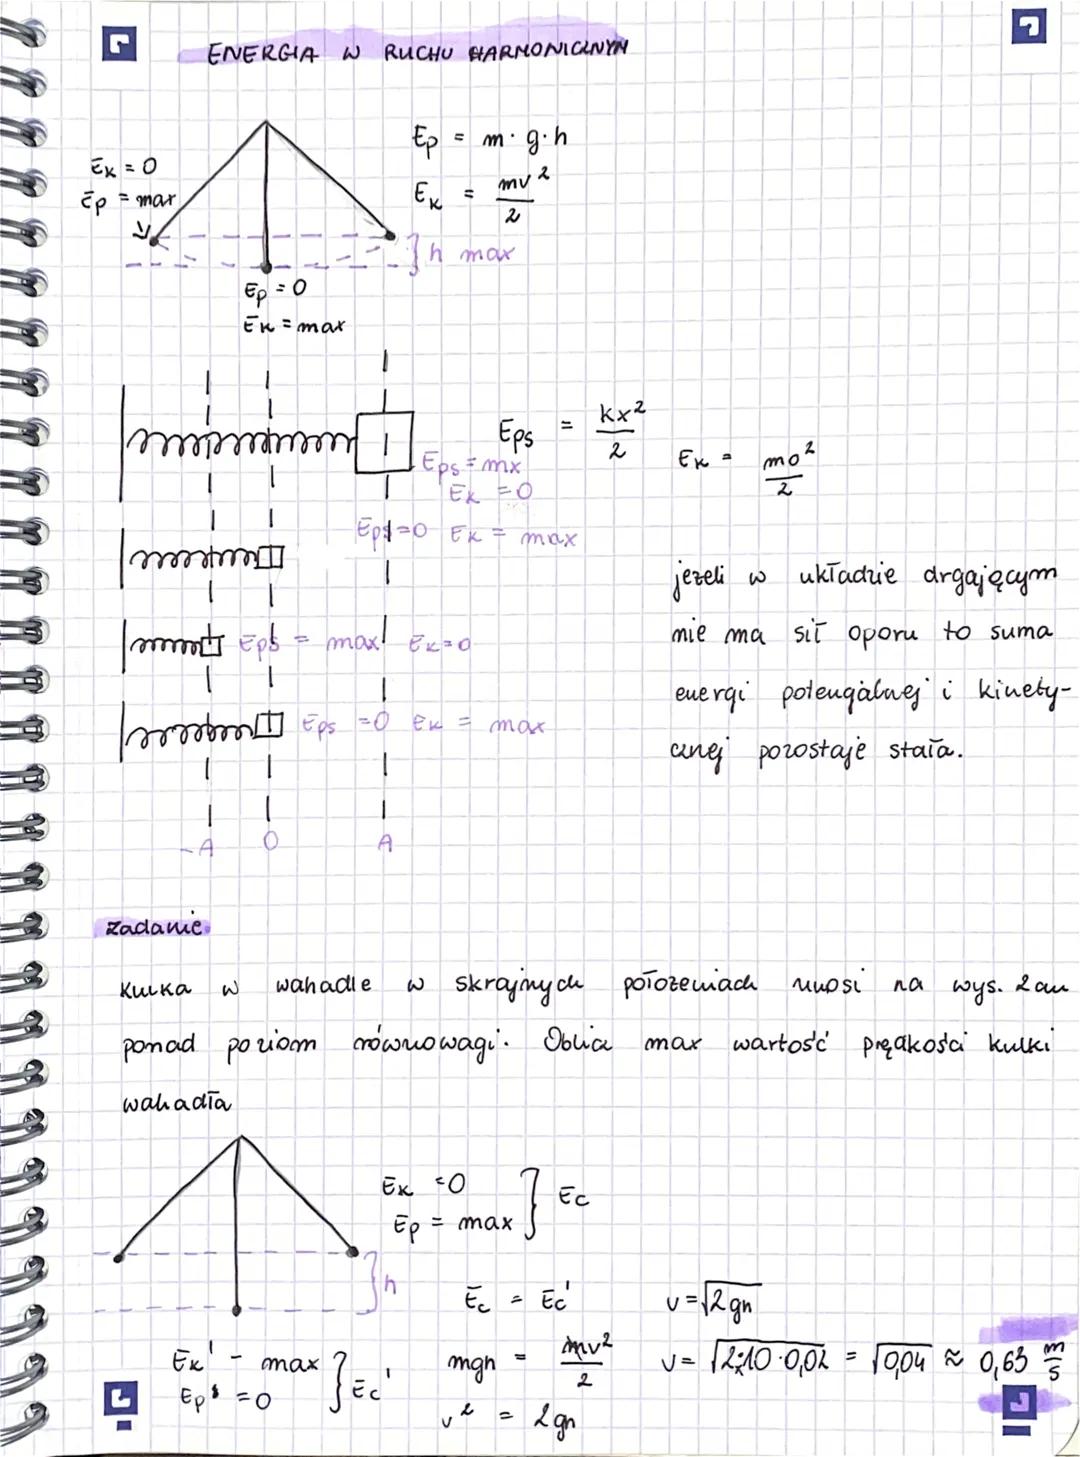 ENERGIA W RUCHU HARMONICZNYM
Ek = 0
Ep = max
Ep = m · g · h
Ek = mv²/2
h max
Ep = 0
Ek = max
Eps = kx²/2
Ek = mv²/2
Eps = mx
Ek = 0
Eps = 0 Ek = max
Eps = max Ek = 0
Eps = 0 Ek = max
-A 0 A
jeżeli w układzie drgającym
nie ma sił oporu to suma
energi potencjalnej i kinety-
cznej pozostaje stała.
zadanie
Kulka w wahadle w skrajnych położeniach wnosi na wys. 2cm
ponad poziom równowagi. Oblicz max wartość prędkości kulki
wahadła
Ek = 0
Ep = max
Ec
h
Ek' - max
Ep' = 0
Ec'
Ec = Ec'
mgh = mv²/2
v² = 2gh
v = √2gh
v = √2·10·0,02 = √0,04 ≈ 0,63 m/s